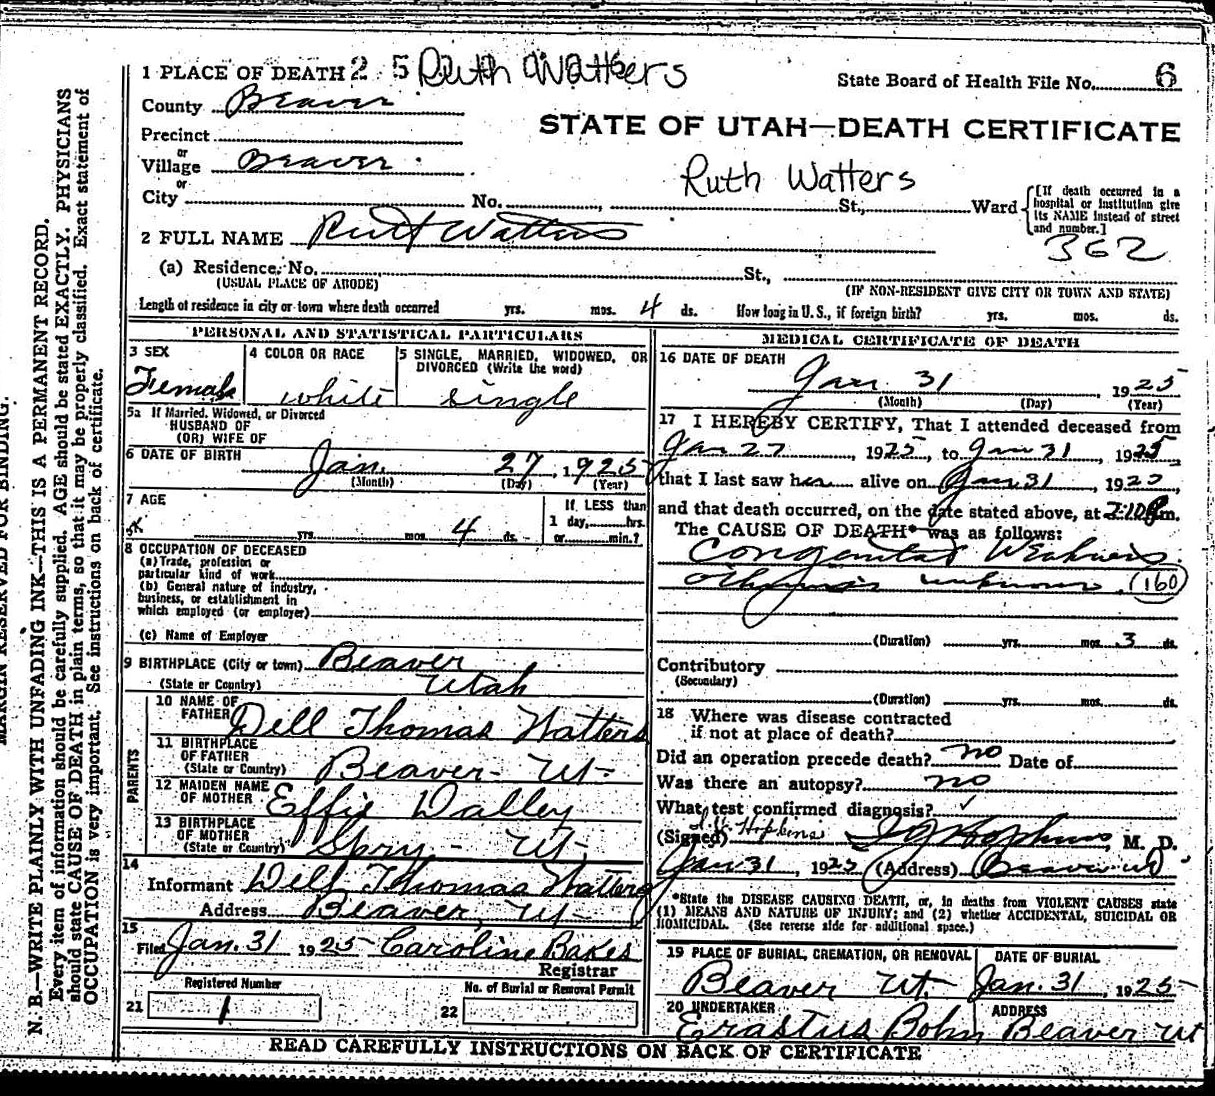 1 PLACE OF DEATH 2 5 Ruth Watters
State Board of Health File No. 6
County Beaver
STATE OF UTAH—DEATH CERTIFICATE
Precinct
or
Village Beaver
Ruth Watters
or
City No. , St., Ward
[If death occurred in a
hospital or institution give
its NAME instead of street
and number.]
362
2 FULL NAME Ruth Watters
(a) Residence, No. St.,
(USUAL PLACE OF ABODE) (IF NON-RESIDENT GIVE CITY OR TOWN AND STATE)
Length of residence in city or town where death occurred yrs. mos. 4 ds. How long in U. S., if foreign birth? yrs. mos. ds.
PERSONAL AND STATISTICAL PARTICULARS
3 SEX 4 COLOR OR RACE 5 SINGLE, MARRIED, WIDOWED, OR
DIVORCED (Write the word)
Female white single
5a If Married, Widowed, or Divorced
HUSBAND OF
(OR) WIFE OF
6 DATE OF BIRTH Jan. 27, 1925
(Month) (Day) (Year)
7 AGE If LESS than
1 day, hrs.
yrs. mos. 4 ds. or min.?
8 OCCUPATION OF DECEASED
(a) Trade, profession or
particular kind of work
(b) General nature of industry,
business, or establishment in
which employed (or employer)
(c) Name of Employer
9 BIRTHPLACE (City or town) Beaver
(State or Country) Utah
PARENTS
10 NAME OF
FATHER Dell Thomas Watters
11 BIRTHPLACE
OF FATHER
(State or Country) Beaver - Ut-
12 MAIDEN NAME
OF MOTHER Effie Dalley
13 BIRTHPLACE
OF MOTHER
(State or Country) Spry - Ut-
14
Informant Dell Thomas Watters
Address Beaver, Ut-
15
Filed Jan. 31 1925- Caroline Bakes
Registrar
Registered Number No. of Burial or Removal Permit
21 1 22
MEDICAL CERTIFICATE OF DEATH
16 DATE OF DEATH
Jan 31, 1925
(Month) (Day) (Year)
17 I HEREBY CERTIFY, That I attended deceased from
Jan 27, 1925, to Jan 31, 1925,
that I last saw her alive on Jan 31, 1925,
and that death occurred, on the date stated above, at 2:10 Pm.
The CAUSE OF DEATH* was as follows:
Congenital Weakness
unknown. (160)
(Duration) yrs. mos. 3 ds.
Contributory
(Secondary)
(Duration) yrs. mos. ds.
18 Where was disease contracted
if not at place of death?
Did an operation precede death? no Date of
Was there an autopsy? no
What test confirmed diagnosis? ✓
(Signed) Hopkins Hopkins, M. D.
Jan 31, 1925 (Address) Beaver Ut
*State the DISEASE CAUSING DEATH, or, in deaths from VIOLENT CAUSES state
(1) MEANS AND NATURE OF INJURY; and (2) whether ACCIDENTAL, SUICIDAL OR
HOMICIDAL. (See reverse side for additional space.)
19 PLACE OF BURIAL, CREMATION, OR REMOVAL DATE OF BURIAL
Beaver Ut. Jan. 31, 1925-
20 UNDERTAKER ADDRESS
Erastus Bohn Beaver Ut
READ CAREFULLY INSTRUCTIONS ON BACK OF CERTIFICATE
MARGIN RESERVED FOR BINDING.
N. B.—WRITE PLAINLY WITH UNFADING INK—THIS IS A PERMANENT RECORD.
Every item of information should be carefully supplied. AGE should be stated EXACTLY. PHYSICIANS
should state CAUSE OF DEATH in plain terms, so that it may be properly classified. Exact statement of
OCCUPATION is very important. See instructions on back of certificate.